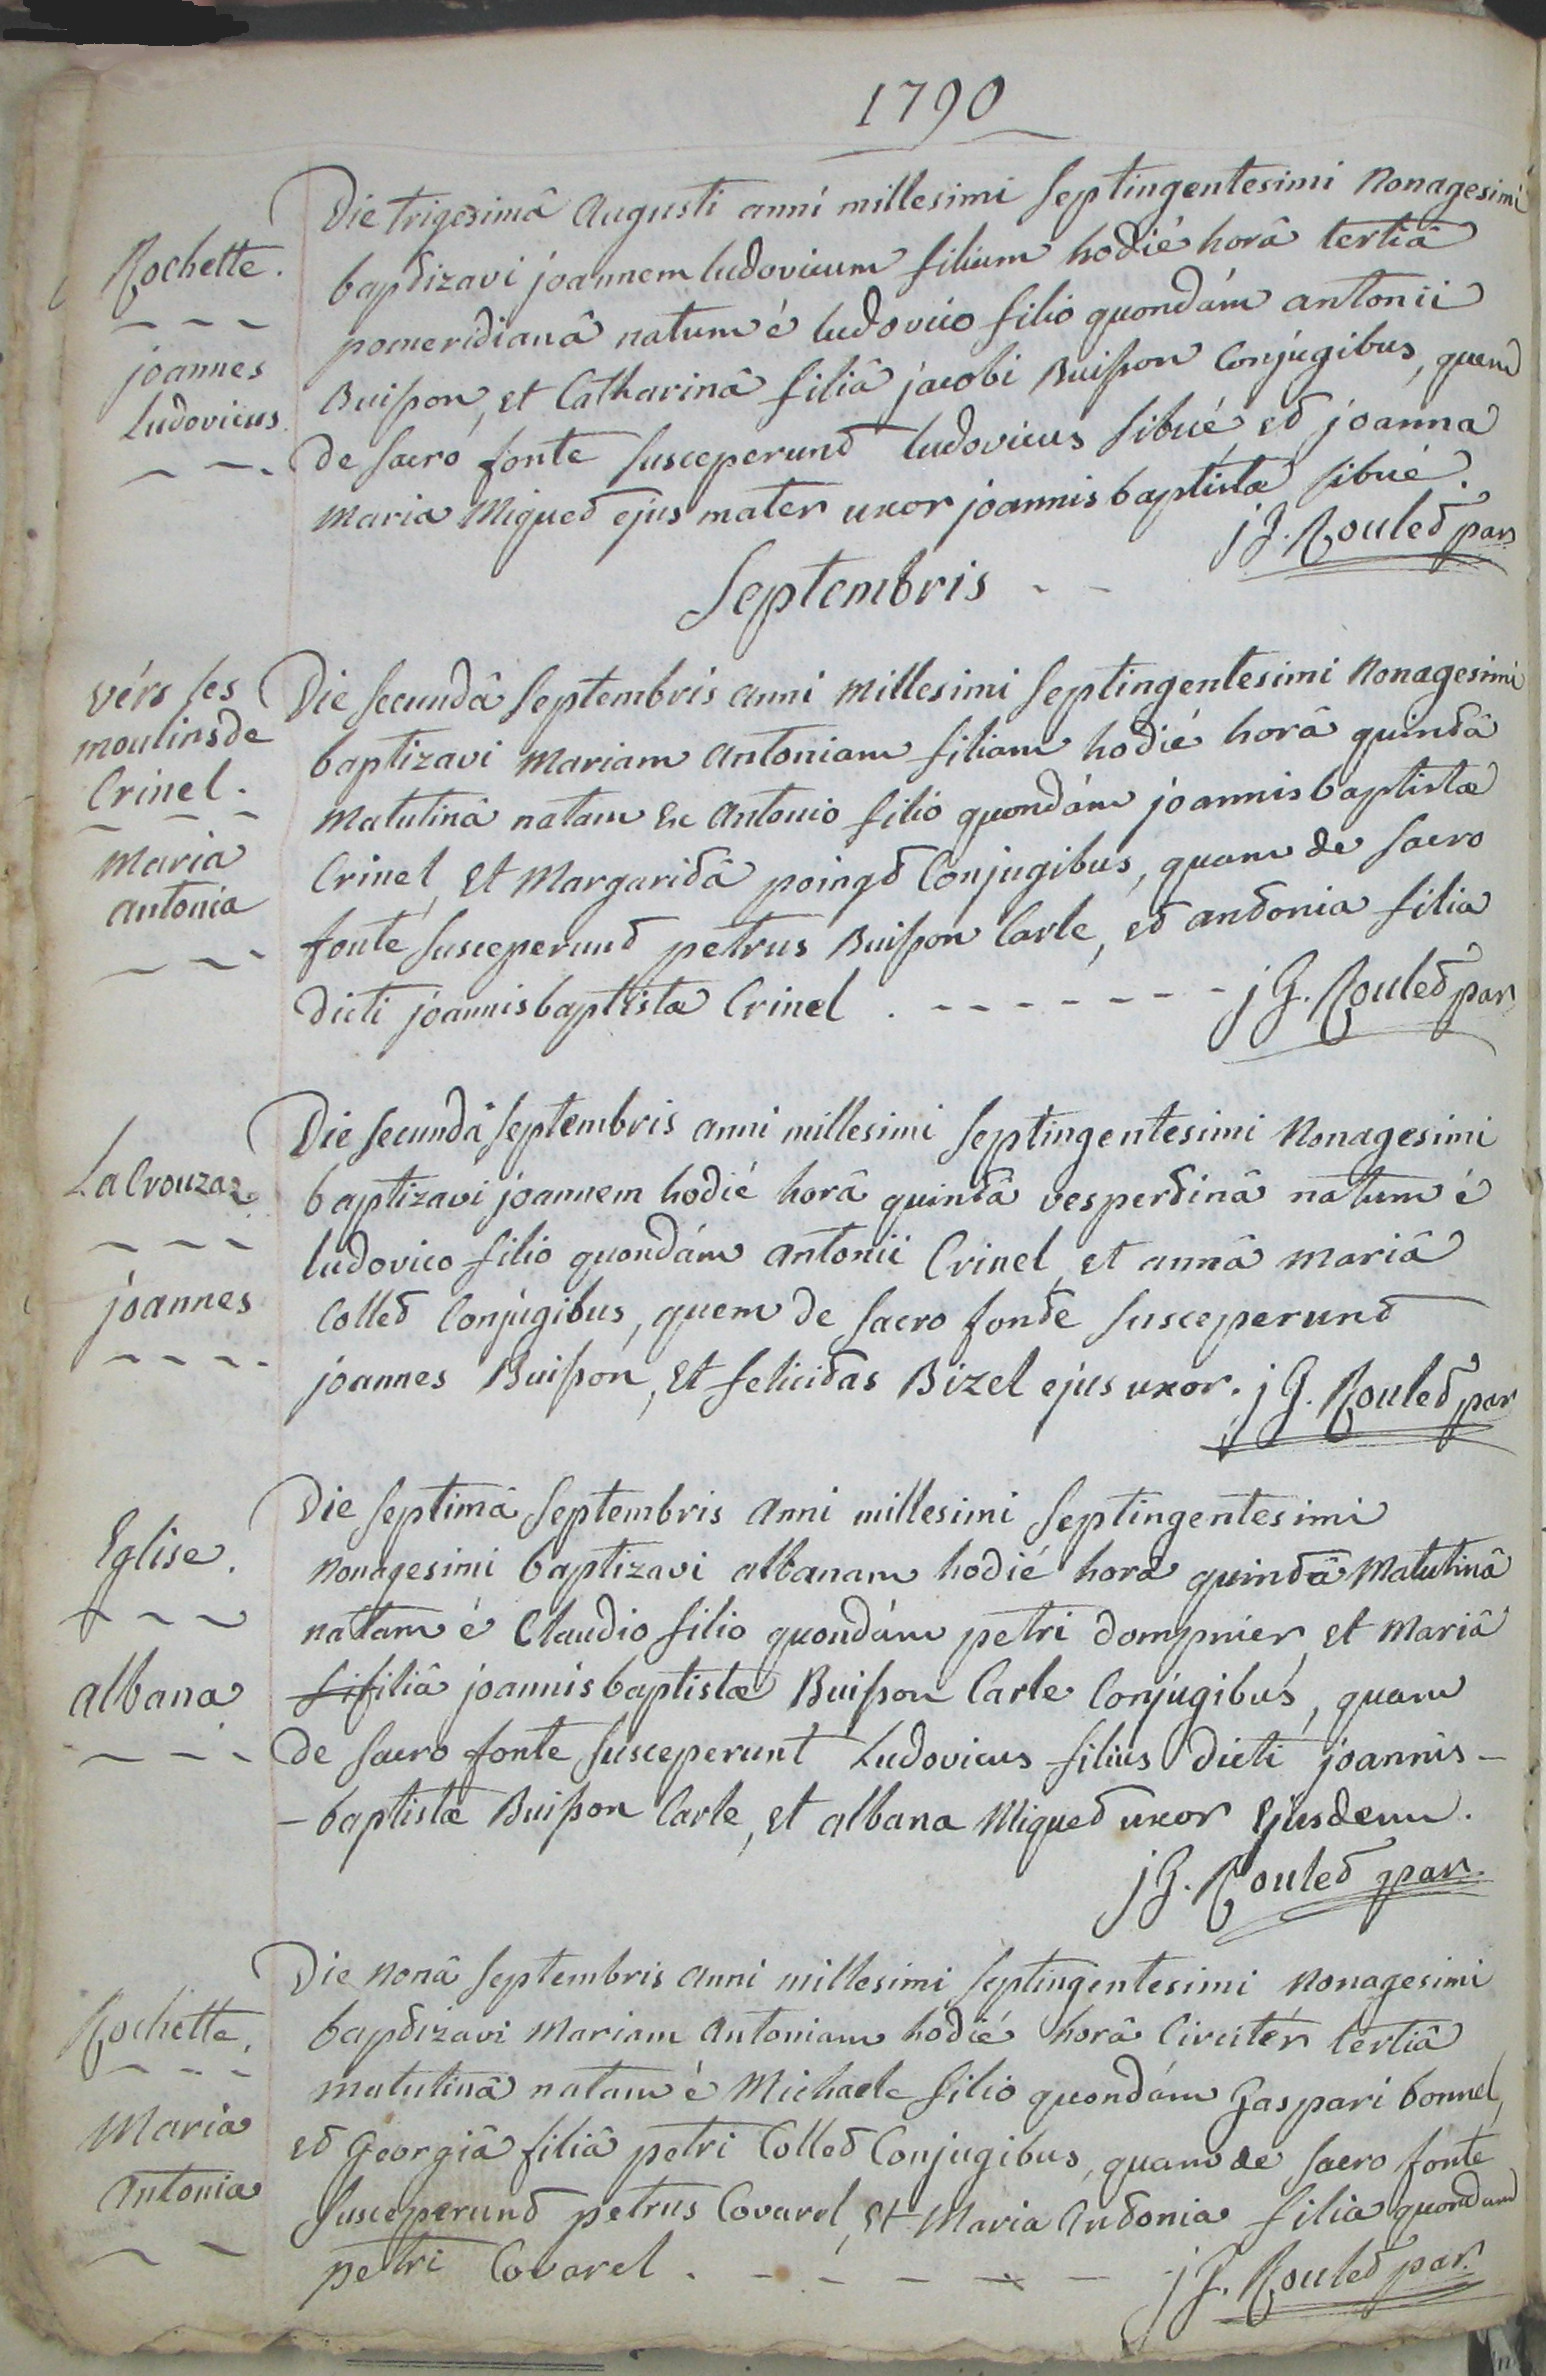 1790
Rochette.
joannes
Ludovicus.
Die trigesimâ Augusti anni millesimi Septingentesimi Nonagesimi
baptizavi joannem ludovicum filium hodié horâ tertiâ
pomeridianâ natum é ludovico filio quondám antonii
Buisson, et Catharinâ filiâ jacobi Buisson Conjugibus, quem
de sacro fonte susceperunt ludovicus sibué et joanna
maria Miquet ejus mater uxor joannis baptistæ sibué.
jG. Roulet par
Septembris - -
vérs les
moulins de
Crinel.
Maria
antonia
Die secundâ Septembris anni Millesimi Septingentesimi Nonagesimi
baptizavi Mariam Antoniam filiam hodié horâ quintâ
Matutinâ natam Ex Antonio filio quondám joannis baptistæ
Crinel, Et Margaritâ poingt Conjugibus, quam de sacro
fonte susceperunt petrus Buisson Carle, et antonia filia
dicti joannis baptistæ Crinel . - - - - - - - jG. Roulet par
La Crouzaz
joannes
Die secundâ Septembris anni millesimi Septingentesimi Nonagesimi
baptizavi joannem hodié horâ quintâ vespertinâ natum é
ludovico filio quondám antonii Crinel, et annâ mariâ
Collet Conjúgibus, quem de sacro fonte susceperunt
joannes Buisson, Et felicitas Bizel ejus uxor. jG. Roulet par
Eglise.
albana
Die septimâ Septembris Anni millesimi Septingentesimi
Nonagesimi baptizavi albanam hodié horâ quintâ Matutinâ
natam é Claudio filio quondám petri dompnier, et Mariâ
fi filiâ joannis baptistæ Buisson Carle Conjugibus, quam
de sacro fonte susceperunt Ludovicus filius dicti joannis -
- baptistæ Buisson Carle, et albana Miquet uxor Ejusdem.
jG. Roulet par.
Rochette.
Maria
Antonia
Die Nonâ Septembris anni millesimi Septingentesimi Nonagesimi
baptizavi Mariam Antoniam hodié horâ Circitér tertiâ
matutinâ natam é Michaele filio quondám Gaspari bonnel,
et Georgiâ filiâ petri Collet Conjugibus, quam de sacro fonte
susceperunt petrus Covarel, et Maria Antonia filia quondam
petri Covarel . - - - - - jG. Roulet par.